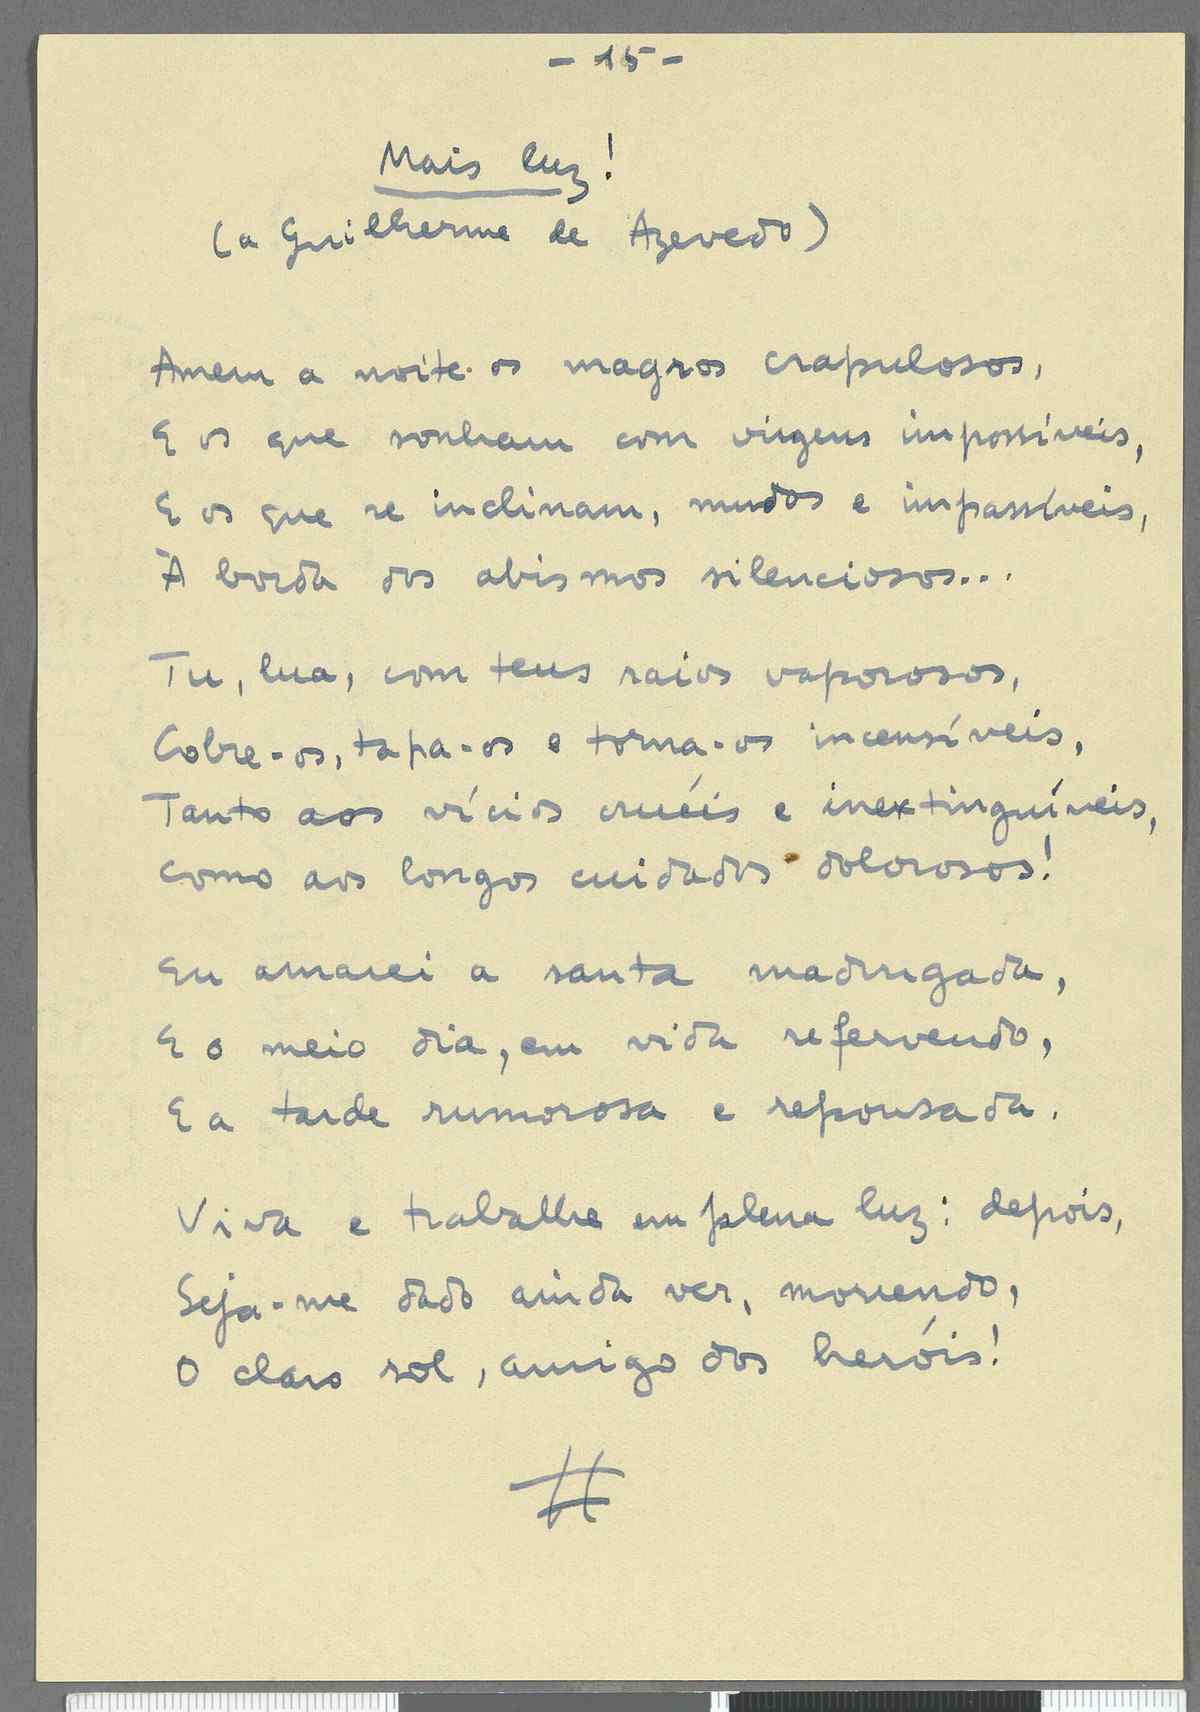 - 15 -
Mais luz!
(a Guilherme de Azevedo)
Amem a noite os magros crapulosos,
E os que sonham com virgens impossíveis,
E os que se inclinam, mudos e impassíveis,
À borda dos abismos silenciosos...
Tu, lua, com teus raios vaporosos,
Cobre-os, tapa-os e torna-os incensíveis,
Tanto aos vícios cruéis e inextinguíveis,
Como aos longos cuidados dolorosos!
Eu amarei a santa madrugada,
E o meio dia, em vida refervendo,
E a tarde rumorosa e repousada.
Viva e trabalhe em plena luz: depois,
Seja-me dado ainda ver, morrendo,
O claro sol, amigo dos heróis!